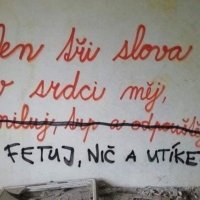 Jen tři slova
v srdci měj,
miluj, trp a odpouštěj
FETUJ, NIČ A UTÍKE